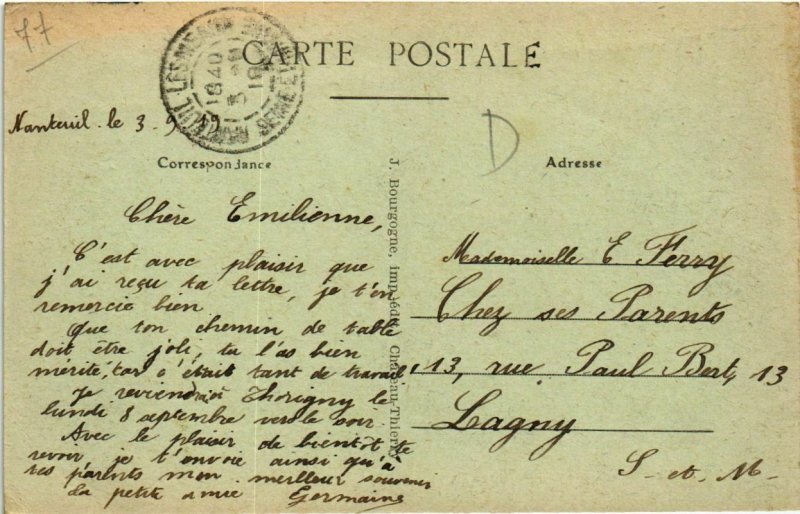 77
CARTE POSTALE
NANTEUIL LES MEAUX SEINE ET
18 40
3 - 9
19
Nanteuil. le 3 - 9 - 19
D
Correspondance
Adresse
J. Bourgogne, imp.-édit., Château-Thierry
Chère Emilienne,
C'est avec plaisir que
j'ai reçu ta lettre, je t'en
remercie bien.
Que ton chemin de table
doit être joli, tu l'as bien
mérité, car c'était tant de travail.
Je reviendrai à Thorigny le
lundi 8 septembre vers le soir.
Avec le plaisir de bientôt te
revoir, je t'envoie ainsi qu'à
tes parents mon meilleur souvenir
Ta petite amie Germaine
Mademoiselle E Ferry
Chez ses Parents
13, rue Paul Bert, 13
Lagny
S-et-M-